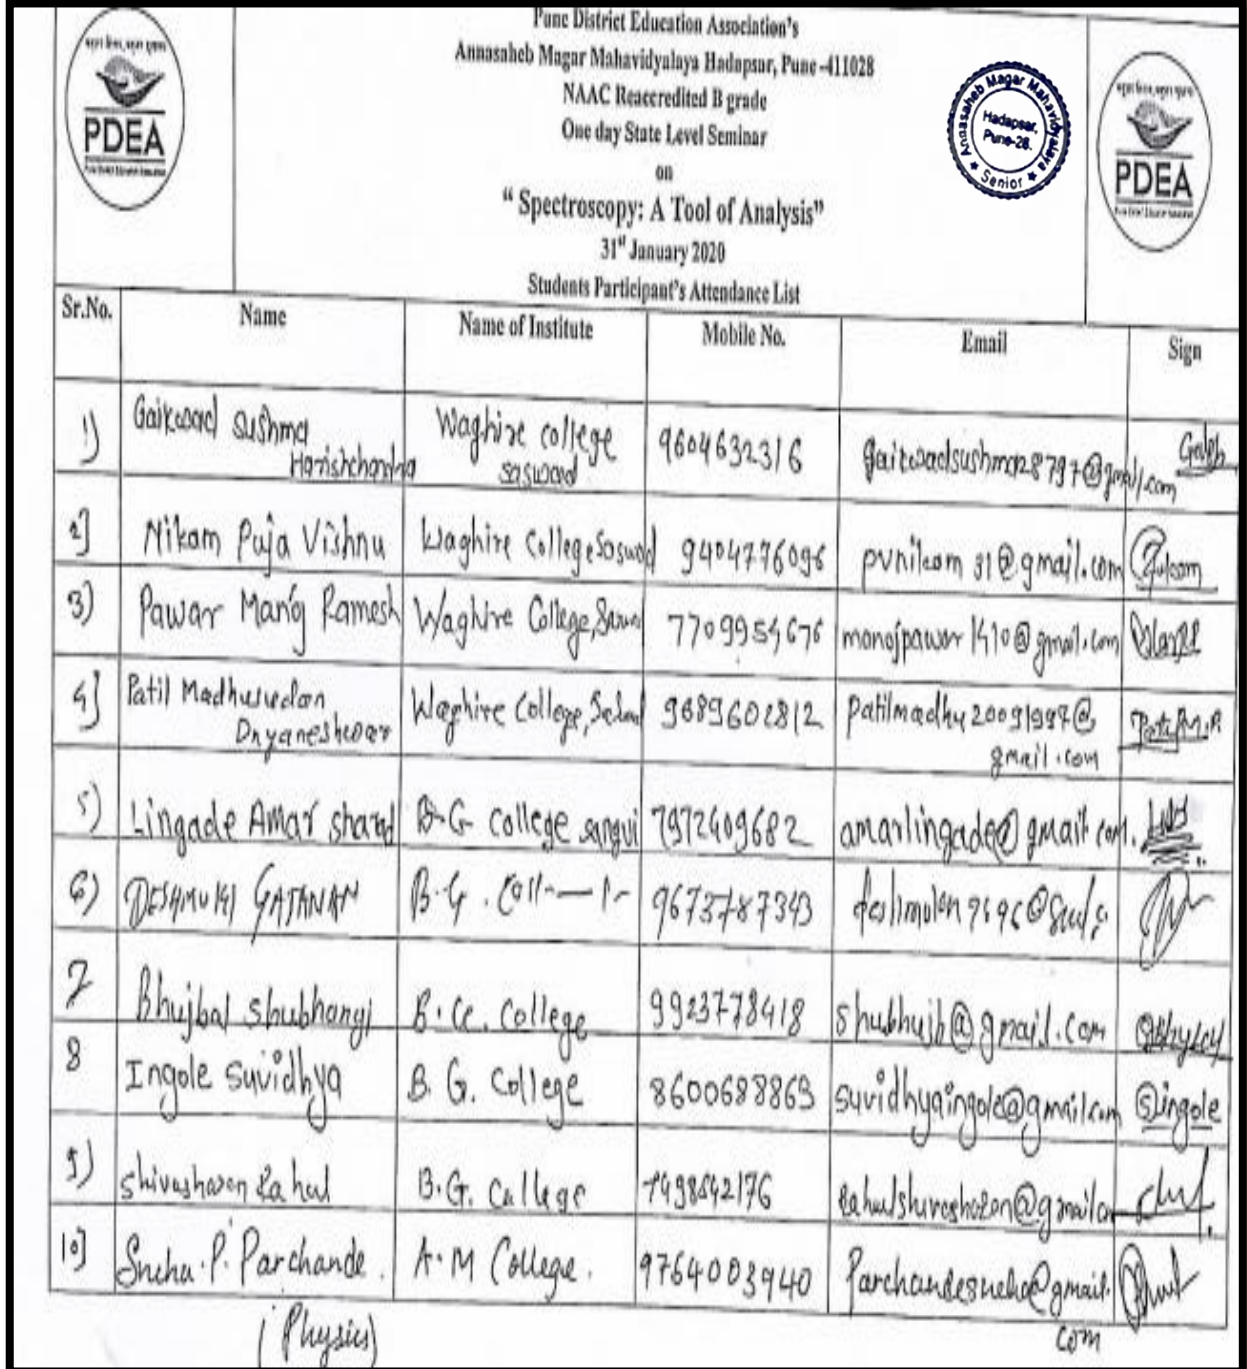 PDEA
Pune District Education Association's
Annasaheb Magar Mahavidyalaya Hadapsar, Pune-411028
NAAC Reaccredited B grade
One day State Level Seminar
on
“ Spectroscopy: A Tool of Analysis”
31st January 2020
Students Participant's Attendance List
Annasaheb Magar Mahavidyalaya
Hadapsar,
Pune-28.
★ Senior ★
PDEA
Sr.No. Name Name of Institute Mobile No. Email Sign
1) Gaikwad Sushma Harishchandra Waghire college Saswad 9604632316 gaikwadsushma28797@gmail.com
2] Nikam Puja Vishnu Waghire College, Saswad 9404776096 pvnikam31@gmail.com
3) Pawar Manoj Ramesh Waghire College, 7709954676 manojpawar1410@gmail.com
4] Patil Madhusudan Dnyaneshwar Waghire College, 9689602812 patilmadhu20091997@gmail.com Patil M.D.
5) Lingade Amar sharad B.G. college sangvi 7972409682 amarlingade@gmail.com.
6) DESHMUKH GAJANAN B.G. 9673787343
7 Bhujbal shubhangi B.G. College 9923778418 shubhujb@gmail.com
8 Ingole Suvidhya B.G. College 8600688869 suvidhyaingole@gmail.com Singole
9) Shivasharan Rahul B.G. College 7498542176
10] Sneha.P. Parchande. A.M College. 9764003940 Parchandesneha@gmail.
(Physics) com